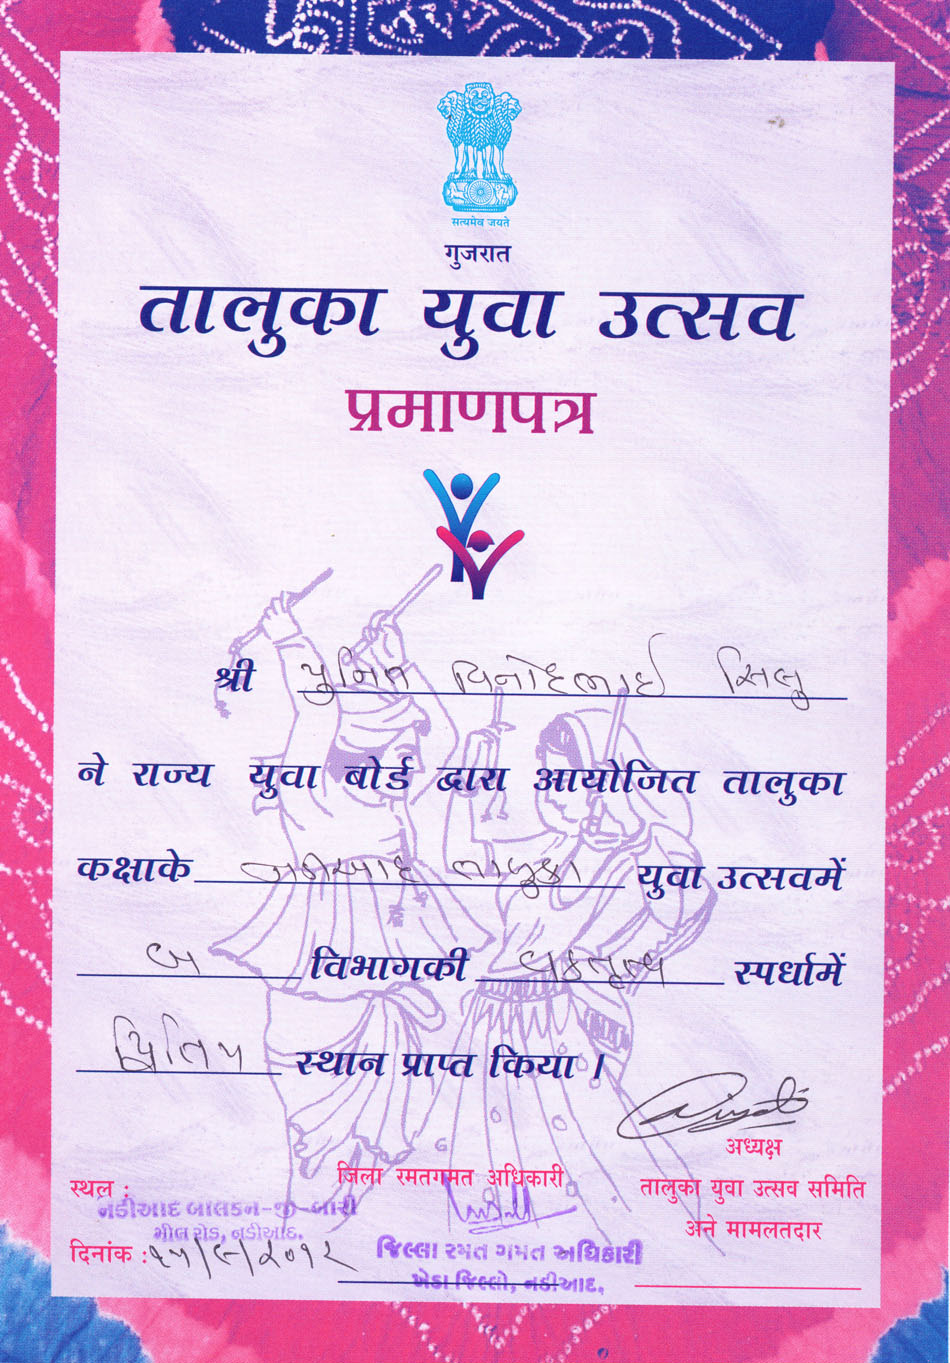 सत्यमेव जयते
गुजरात
तालुका युवा उत्सव
प्रमाणपत्र
श्री પુનિત વિનોદભાઈ સિલુ
ने राज्य युवा बोर्ड द्वारा आयोजित तालुका
कक्षाके નડીઆદ તાલુકા युवा उत्सवमें
બ विभागकी વકતૃત્વ स्पर्धामें
દ્વિતિય स्थान प्राप्त किया ।
अध्यक्ष
तालुका युवा उत्सव समिति
अने मामलतदार
जिला रमतगमत अधिकारी
જિલ્લા રમત ગમત અધિકારી
ખેડા જિલ્લો, નડીઆદ.
स्थल :
નડીઆદ બાલકન-જી-બારી
મીલ રોડ, નડીઆદ.
दिनांक : ૧૫/૯/૨૦૧૨